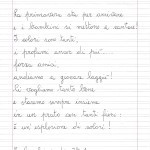 La primavera sta per arrivare
e i bambini si mettono a cantare!
I colori sono tanti,
i profumi ancor di più.
forza amici,
andiamo a giocare laggiù!
Ci vogliamo tanto bene
e stiamo sempre insieme
in un prato con tanti fiori:
è un'esplosione di colori!